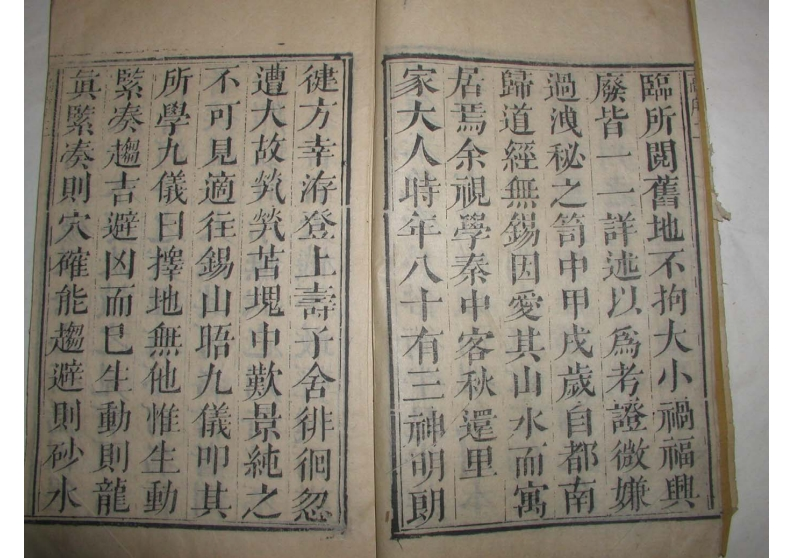 臨所閱舊地不拘大小禍福興
廢皆一一詳述以爲考證微嫌
過洩秘之笥中甲戌歲自都南
歸道經無錫因愛其山水而寓
居焉余視學秦中客秋還里
家大人時年八十有三神明朗
徤方幸洊登上壽子舍徘徊忽
遭大故煢煢苦塊中歎景純之
不可見適往錫山晤九儀叩其
所學九儀曰擇地無他惟生動
緊凑趨吉避凶而巳生動則龍
眞緊凑則穴確能趨避則砂水